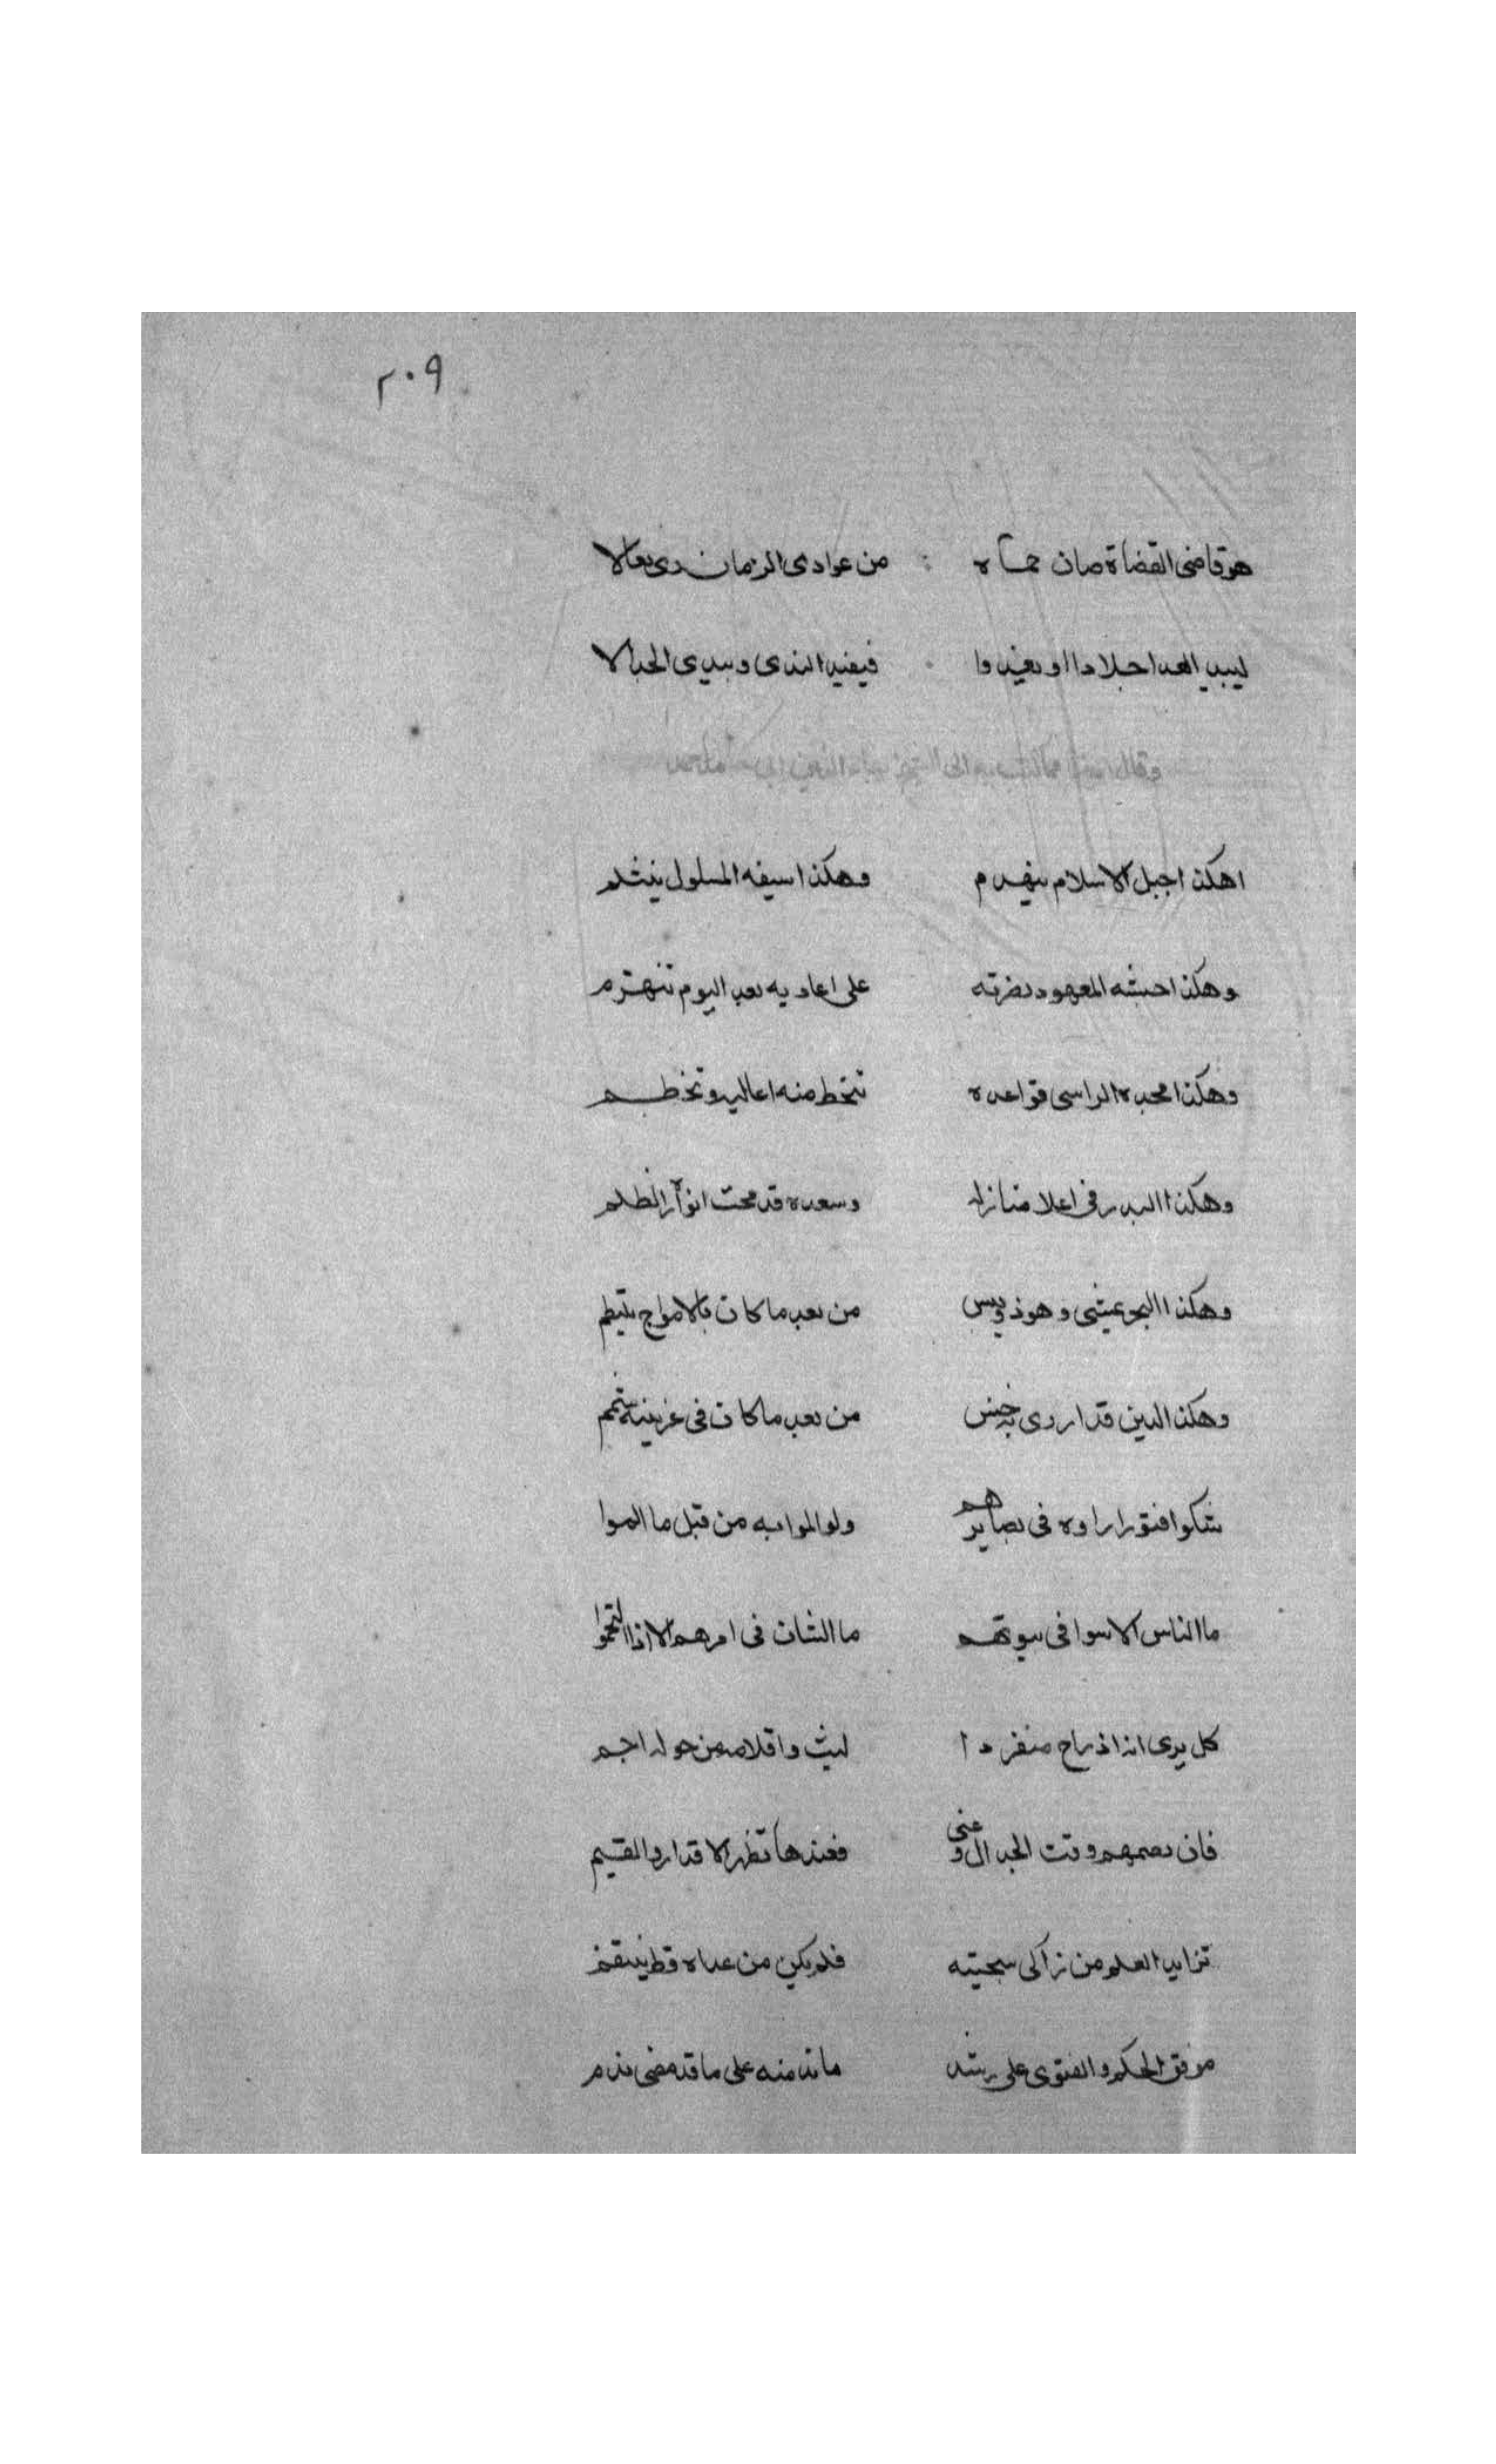 ٢٠٩
هو قاضى القضاة صان حماه من عوادى الزمان ربى تعالا
ليبيد العدا جلادا او يغيدوا فيفيد الندى ويبدى الجدالا
وقال ايضا مما كتب به الى الشيخ
اهكذا جبل الاسلام ينهدم وهكذا سيفه المسلول ينثلم
وهكذا جيشه المعهود نصرته على اعاديه بعد اليوم تنهزم
وهكذا مجده الراسى قواعده تنحط منه اعاليه وتخطم
وهكذا البدر فى اعلا منازله وسعده قد محت انواره الظلم
وهكذا البحر يمشى وهو ذو يبس من بعد ما كان بالامواج يلتطم
وهكذا الدين قد اروى به من بعد ما كان فى عرنينه شمم
شكوا فتورا راوه فى بصايرهم ولو الموا به من قبل ما الموا
ما الناس الا سوا فى بيوتهم ما الشان فى امرهم الا اذا التحموا
كل يرى انه اذ راح منفردا ليث واقلامه من حوله اجم
فان يضمهم وقت الجدال وغى فعندها تظهر الاقدار والقيم
تزايد العلم من زاكى سجيته فلم يكن من عداه قط ينتقم
موفق الحكم والفتوى على رشد ماند منه على ما قد مضى ندم